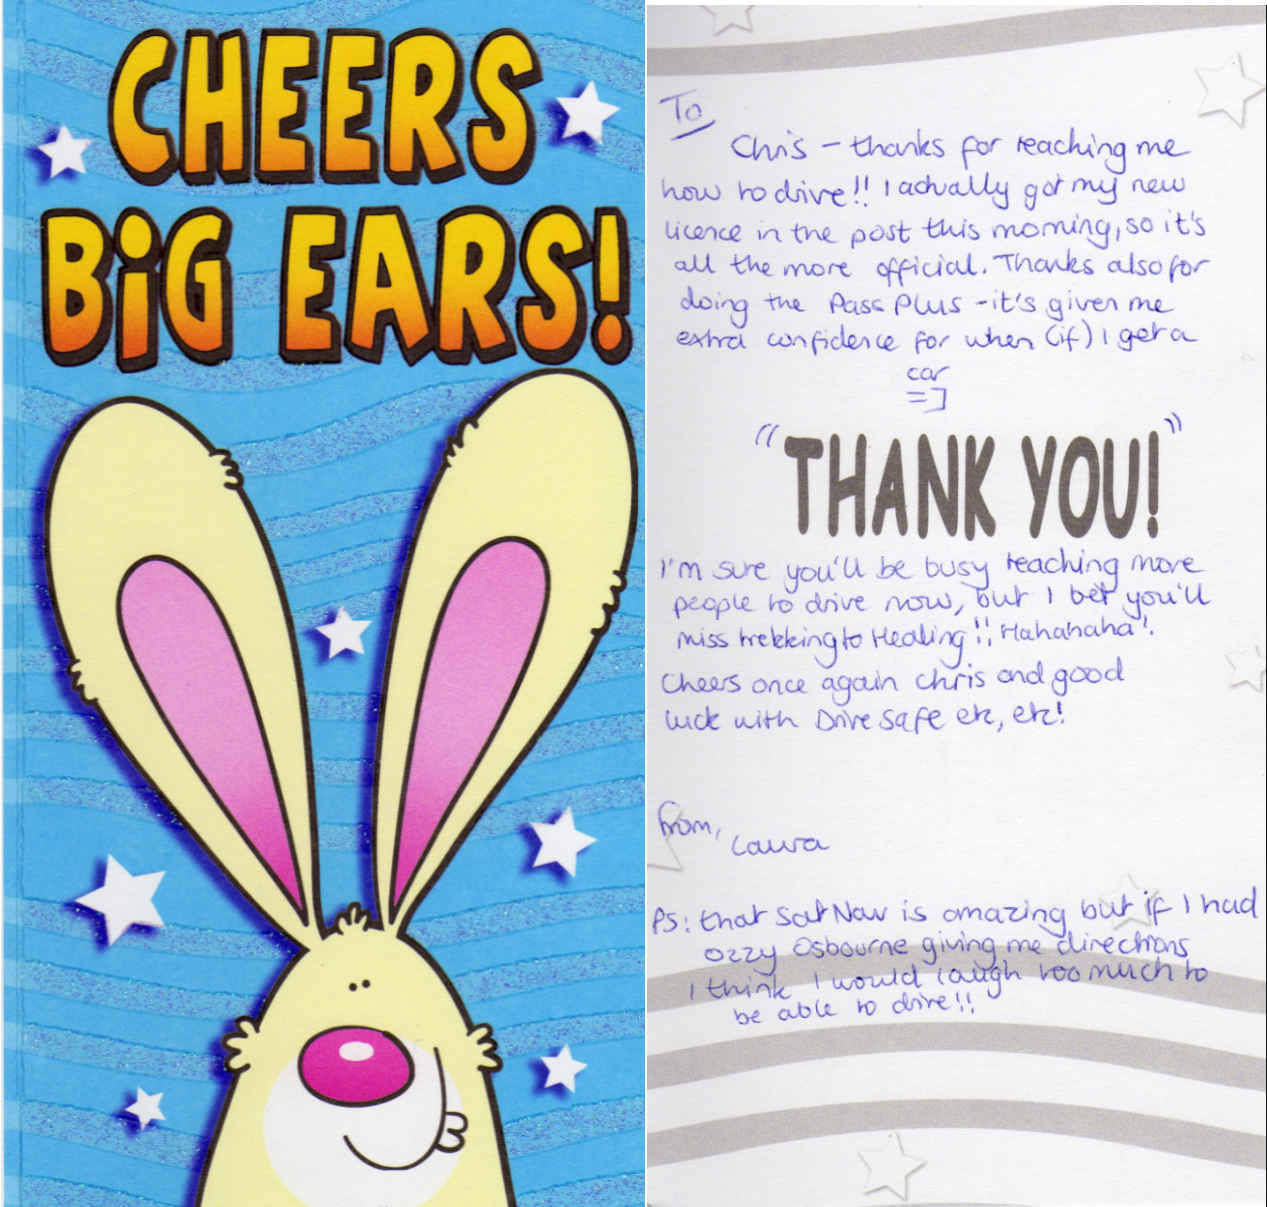 CHEERS
BiG EARS!
To
Chris - thanks for teaching me
how to drive!! I actually got my new
licence in the post this morning, so it's
all the more official. Thanks also for
doing the Pass Plus - it's given me
extra confidence for when (if) I get a
car
=]
"THANK YOU!"
I'm sure you'll be busy teaching more
people to drive now, but I bet you'll
miss trekking to Healing!! Hahahaha!
Cheers once again Chris and good
luck with Drive Safe etc, etc!
From,
Laura
PS: that Sat Nav is amazing but if I had
Ozzy Osbourne giving me directions
I think I would laugh too much to
be able to drive!!